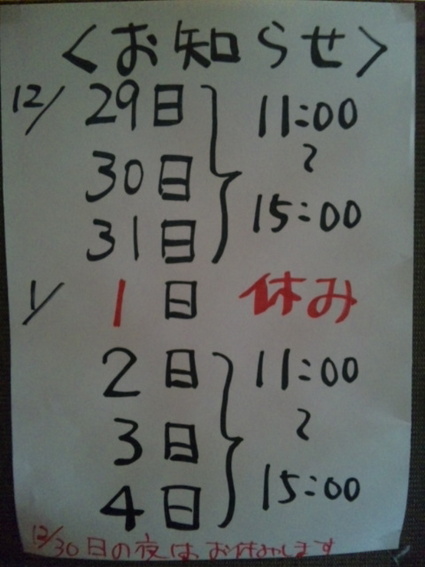 〈お知らせ〉
12/ 29日 11:00
30日 〜
31日 15:00
1/ 1日 休み
2日 11:00
3日 〜
4日 15:00
12/30日の夜はお休みします